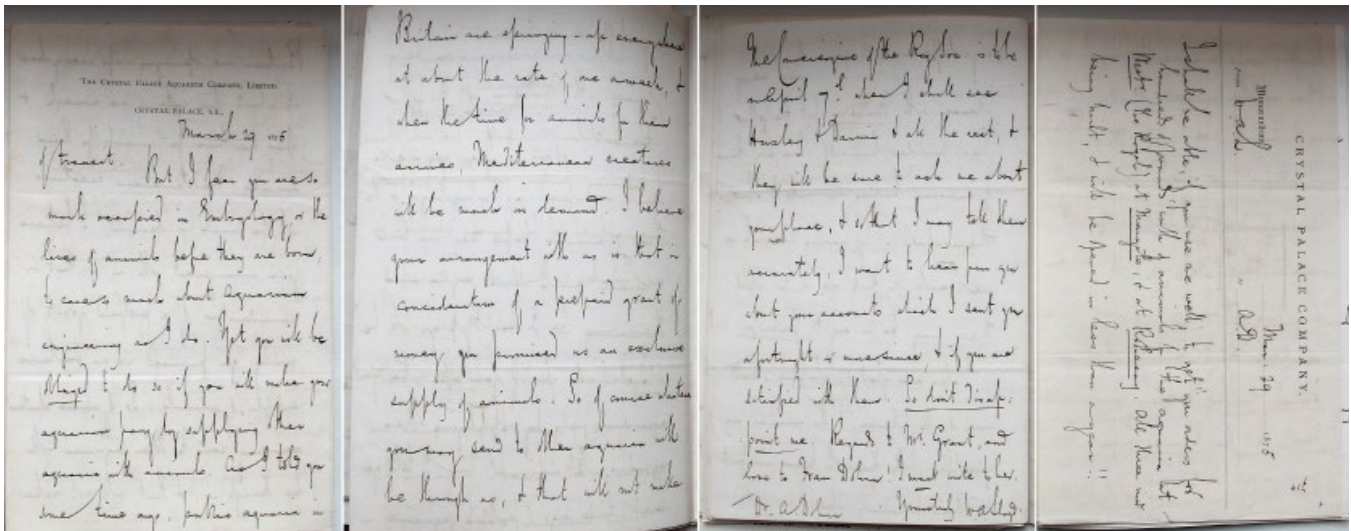 THE CRYSTAL PALACE AQUARIUM COMPANY, LIMITED.
CRYSTAL PALACE, S.E.,
March 29 1875
of transit. But I fear you are so
much occupied in Embryology or the
lives of animals before they are born,
to care as much about aquarium
engineering as I do. Yet you will be
obliged to do so if you will make your
aquarium pay by supplying other
aquaria with animals. As I told you
some time ago, public aquaria in
Britain are springing-up everywhere
at about the rate of one a week, &
when the time for animals for them
arrives, Mediterranean creatures
will be much in demand. I believe
your arrangement with us is that in
consideration of a prepaid grant of
money, you promised us an exclusive
supply of animals. So of course whatever
you may send to other aquaria will
be through us, & that will not make
The Conversazione of the Roy. Soc. is to be
on April 7th when I shall see
Huxley & Darwin & all the rest, &
they will be sure to ask me about
your place, & so that I may tell them
accurately, I want to hear from you
about your accounts which I sent you
a fortnight or more since & if you are
satisfied with them. So don't disap-
point me. Regards to Mr. Grant, and
love to Frau Dohrn! I must write to her.
Dr. A Dohrn Yours truly W A Lloyd.
CRYSTAL PALACE COMPANY.
Memorandum
from W A L. " A D Mar. 29 1875
I shall be able, if you are well, to get you orders for
hundreds of pounds worth of animals for the aquaria at
Westr (the Royal) at Margate, & at Rothesay. All three now
being built, & will be opened in less than a year!!